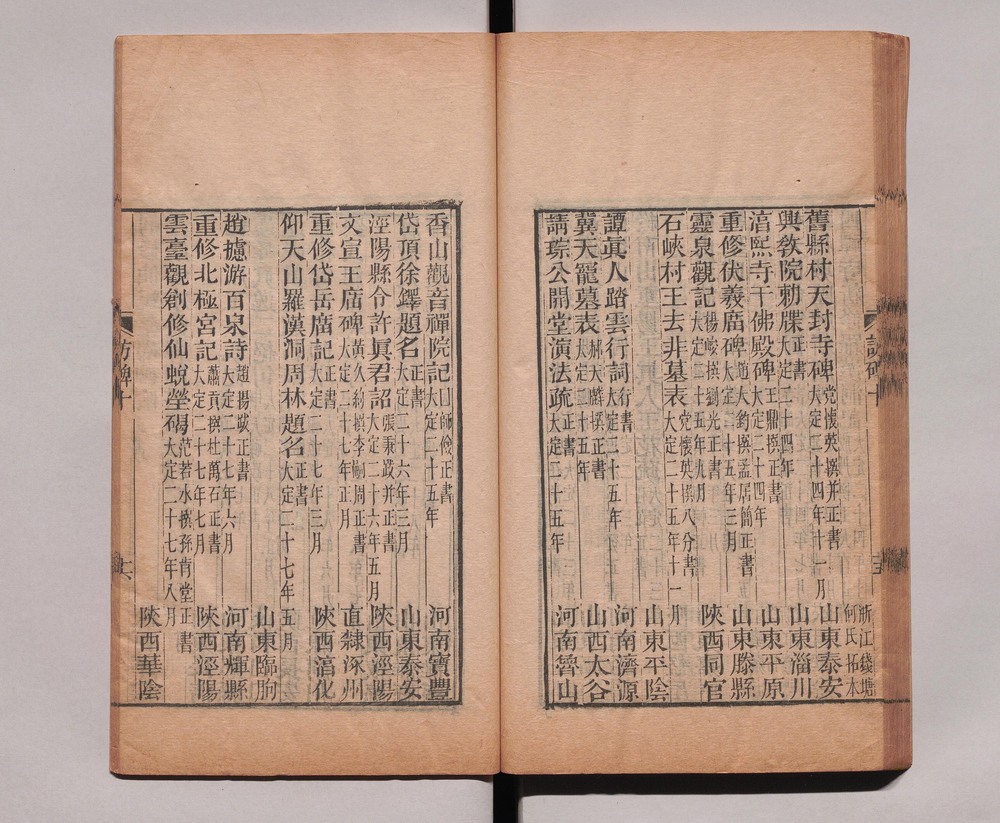 浙江錢塘何氏拓本
舊縣村天封寺碑 党懷英撰并正書 大定二十四年十一月 山東泰安
興教院勅牒 正書 大定二十四年 山東淄川
淯熙寺千佛殿碑 王鼎撰正書 大定二十四年 山東平原
重修伏羲廟碑 趙大鈞撰孟居簡正書 大定二十五年三月 山東滕縣
靈泉觀記 楊峻撰劉光正書 大定二十五年九月 陝西同官
石峽村王去非墓表 党懷英撰八分書 大定二十五年十一月 山東平陰
譚眞人踏雲行詞 行書 大定二十五年 河南濟源
冀天寵墓表 郝天麟撰正書 大定二十五年 山西太谷
請琮公開堂演法疏 正書 大定二十五年 河南魯山
香山觀音禪院記 師儉正書 大定二十五年 河南寶豐
岱頂徐鐸題名 正書 大定二十六年三月 山東泰安
涇陽縣令許眞君詔 張秉彧并正書 大定二十六年五月 陝西涇陽
文宣王廟碑 黃久約撰李嗣周正書 大定二十七年正月 直隸涿州
重修岱岳廟記 正書 大定二十七年三月 陝西淯化
仰天山羅漢洞周林題名 正書 大定二十七年五月 山東臨朐
趙攄游百泉詩 趙揚正書 大定二十七年六月 河南輝縣
重修北極宮記 蕭貢撰杜萬石正書 大定二十七年七月 陝西涇陽
雲臺觀創修仙蛻塋碣 范若水撰孫肯堂正書 大定二十七年八月 陝西華陰